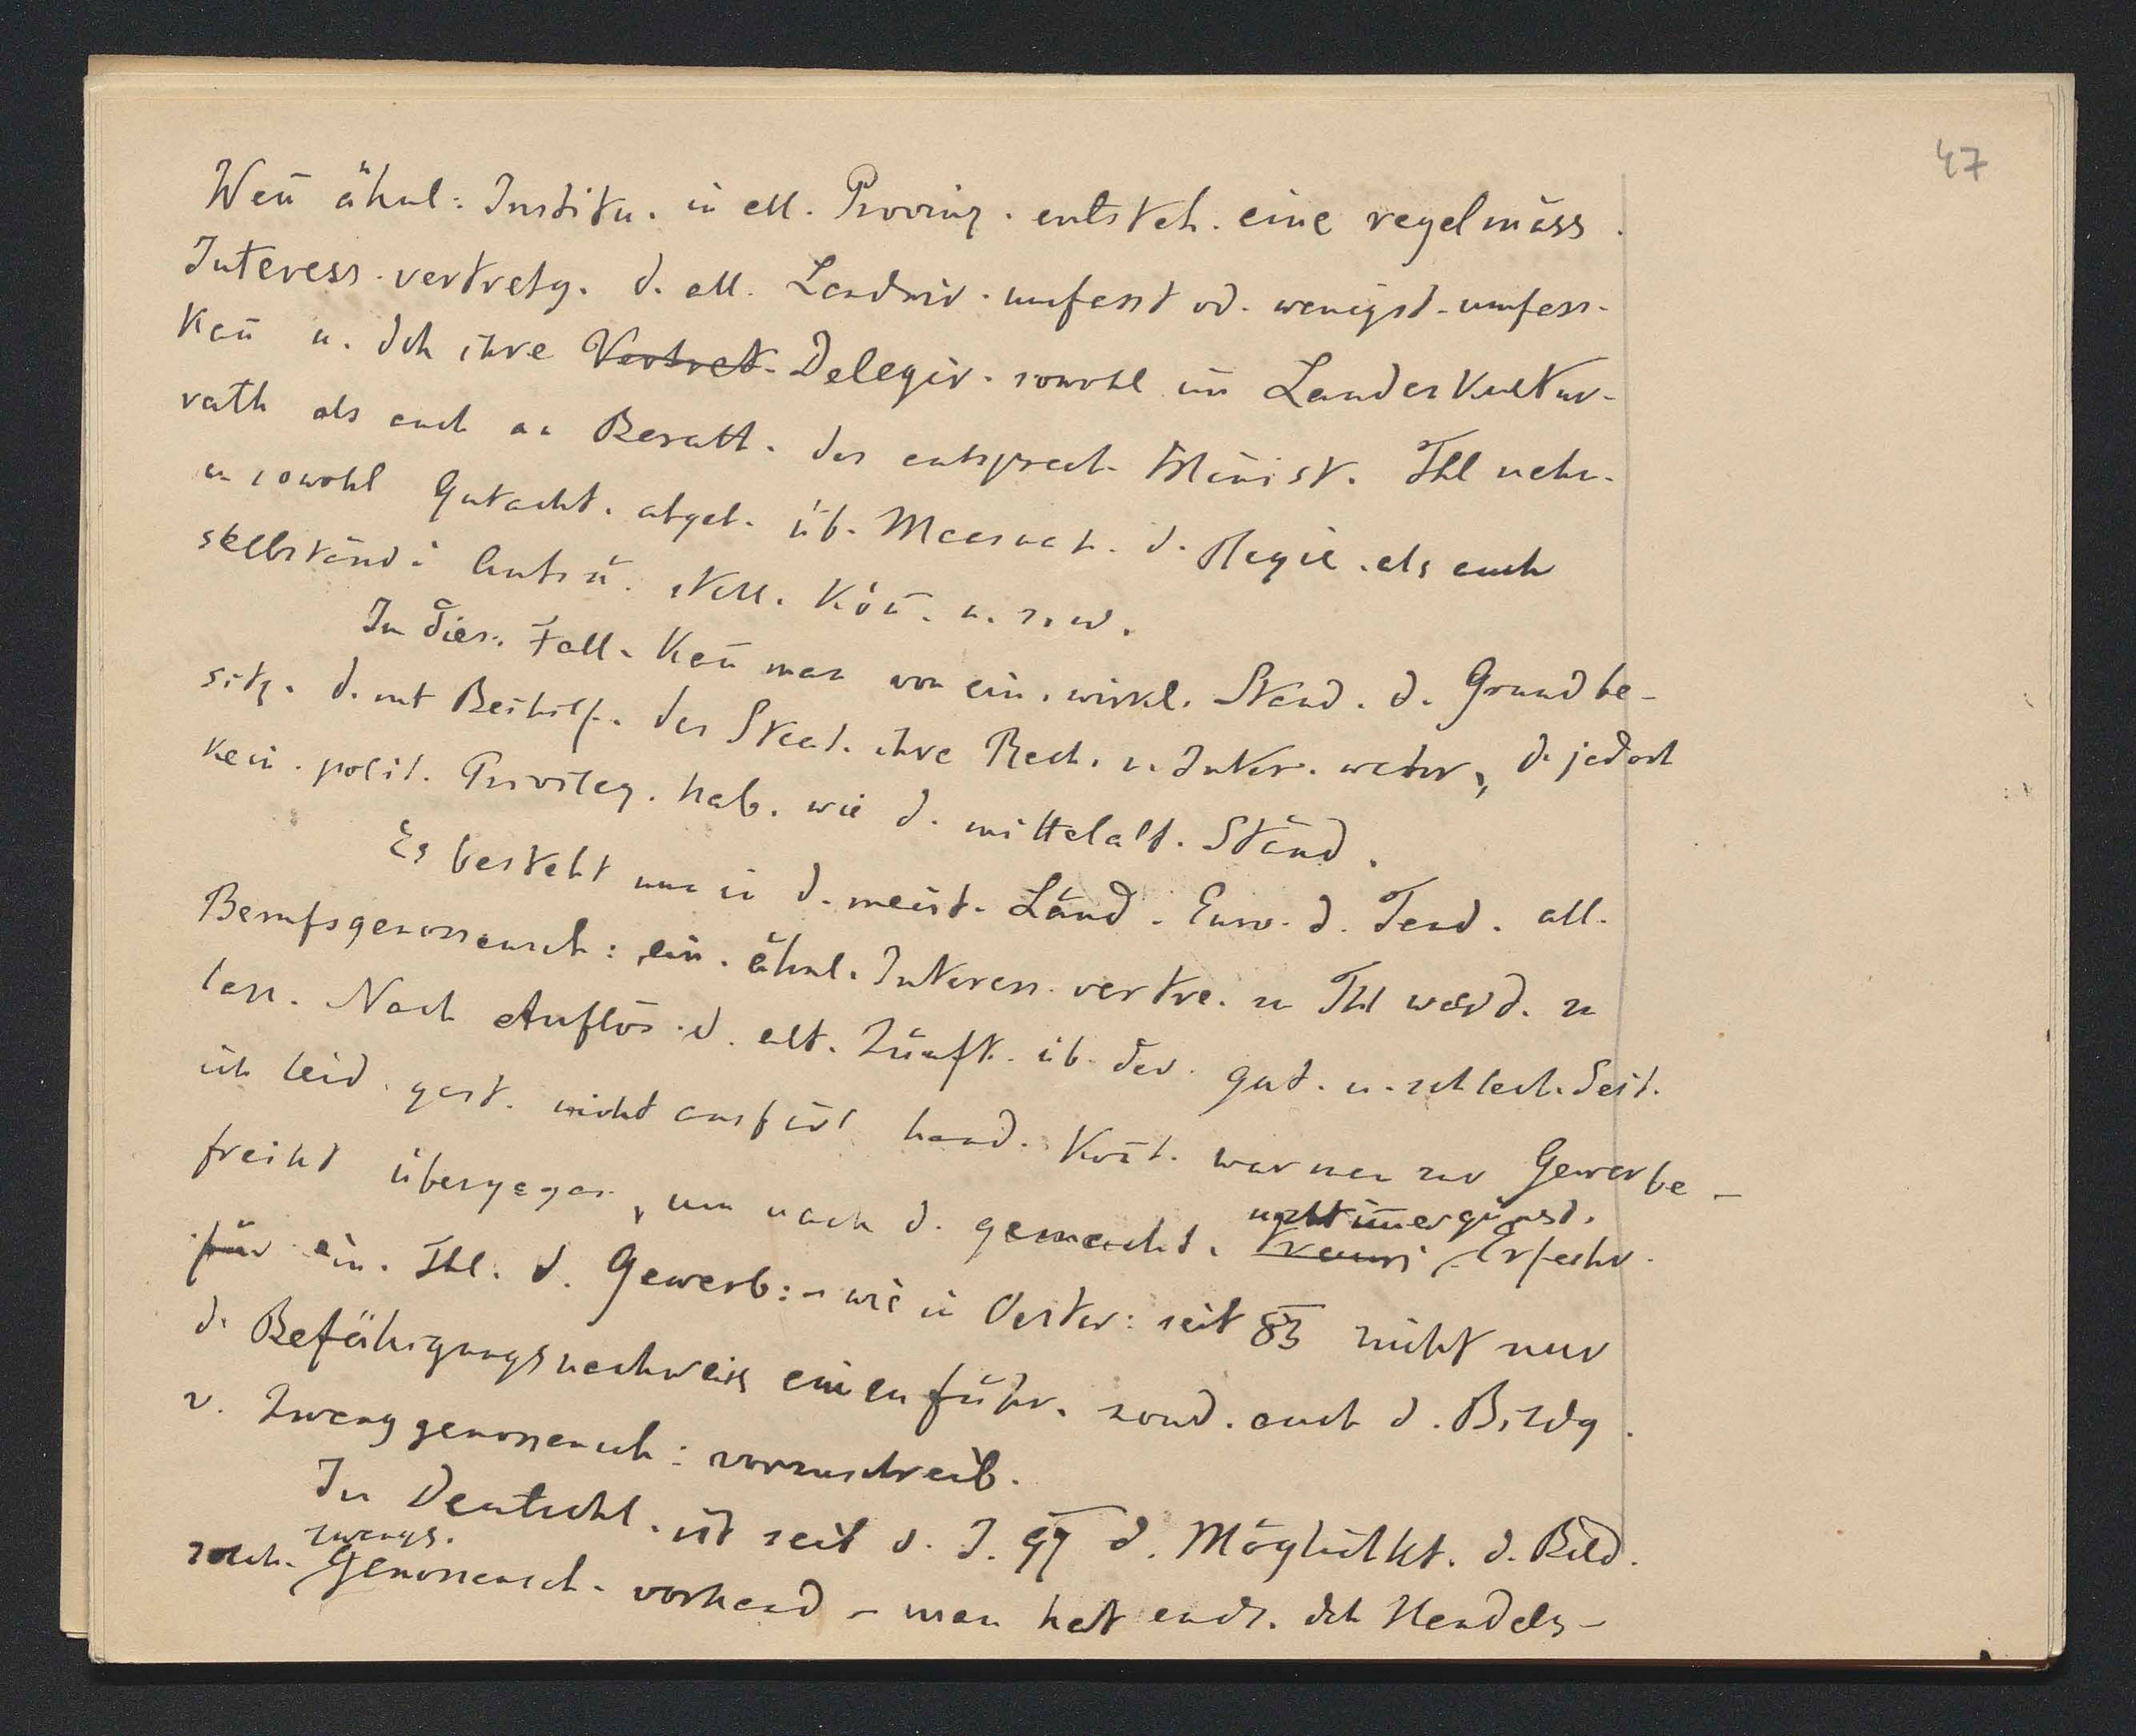 47
Wen̄ ähnl: Institu. in all. Provinz. entsteh. eine regelmäss.
Interess. vertretg. d. all. Landwir. umfasst od. wenigst. umfass.
kan̄ u. dch ihre Vertret. Delegir. sowohl im Landeskultur-
rath als auch an Berath. des entsprech. Minist. Thl nehm.
u. sowohl Gutacht. abgeb. üb. Maasnah. d. Regie. als auch
selbständ: Anträ. stell. kön̄. u. s. w.
In dies. Fall. kan̄ man von ein. wirkl. Stand. d. Grundbe-
sitz. d. mit Beihilf. des Staat. ihre Rech. u. Inter. wahr, d. jedoch
kein. polit. Privileg. hab. wie d. mittelalt. Ständ.
Es besteht nun in d. meist. Länd. Euro. d. Tend. all.
Berufsgenossensch: ein. ähnl. Interess. vertre. zu Thl werd. zu
lass. Nach Auflös. d. alt. Zünft. üb. der. gut. u. schlech. Seit.
ich leid. gest. nicht ausfür hand. kon̄t. war man zur Gewerbe-
freiht übergegan, um nach d. gemacht.
nicht im̄er günst.
Erfahr.
für ein. Thl. d. Gewerb: - wie in Oester: seit 83 nicht nur
d. Befähigungsnachweis einzuführ. sond. auch d. Bildg.
v. Zwanggenossensch: vorzuschreib.
In Deutschl. ist seit d. J. 97 d. Möglichkt. d. Bild.
zwangs.
solch. Genossensch. vorhand - man hat endl. dch Handels-